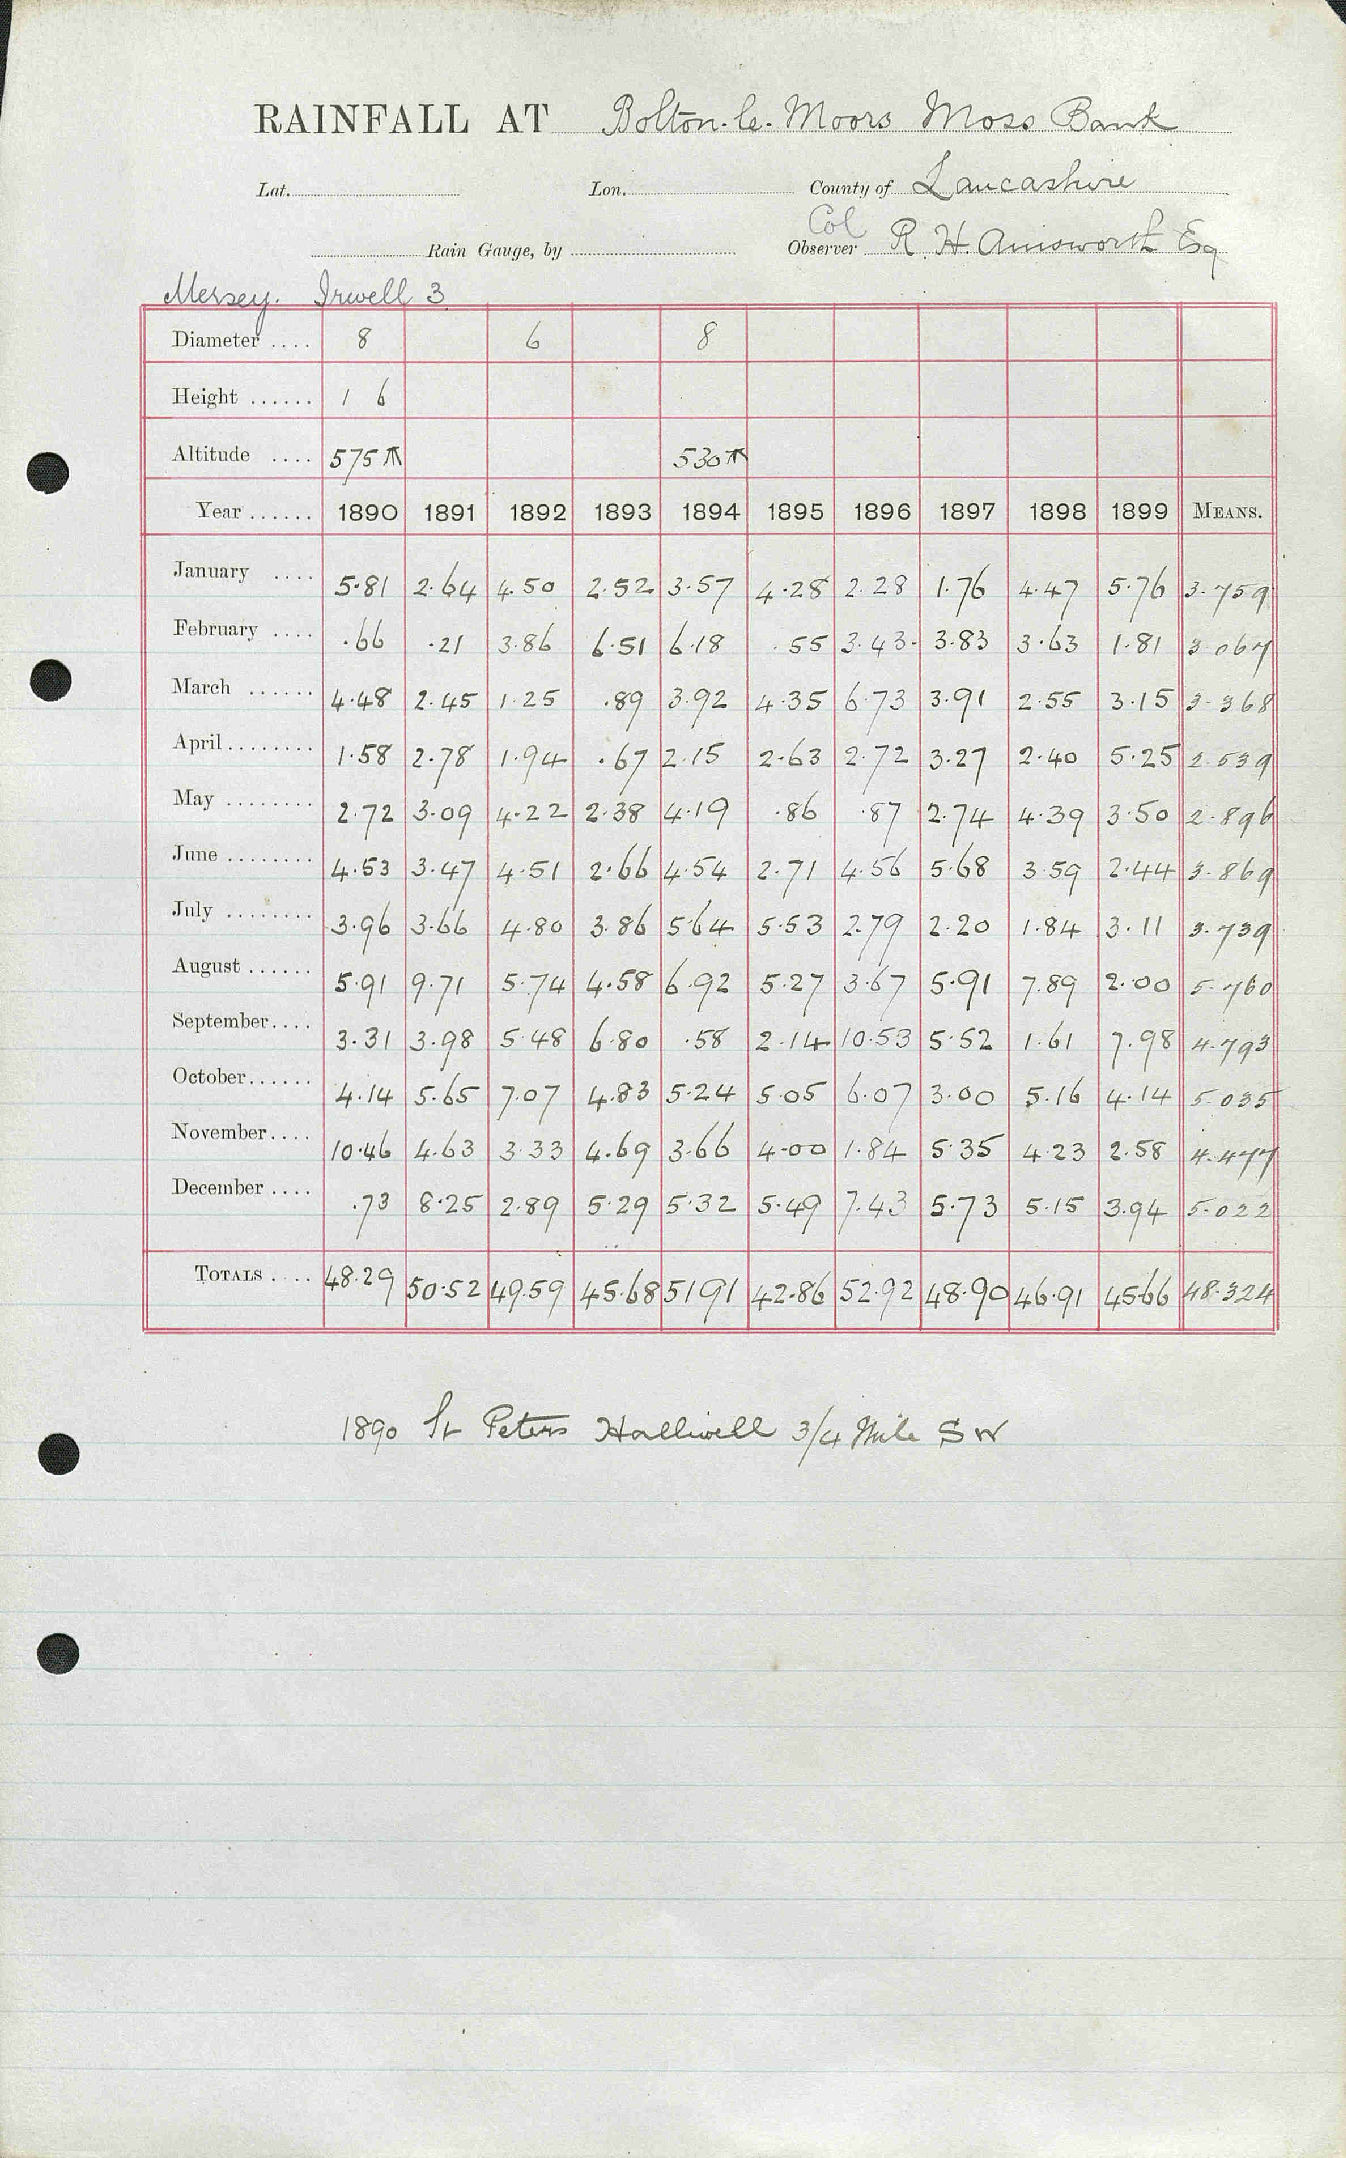 RAINFALL AT Bolton-le-Moors Moss Bank
Lat. Lon. County of Lancashire
Col
Rain Gauge, by Observer R. H. Ainsworth Esq
Mersey. Irwell 3
Diameter .... 8 6 8
Height ...... 1 6
Altitude .... 575 530
Year ...... 1890 1891 1892 1893 1894 1895 1896 1897 1898 1899 MEANS.
January .... 5.81 2.64 4.50 2.52 3.57 4.28 2.28 1.76 4.47 5.76 3.759
February .... .66 .21 3.86 6.51 6.18 .55 3.43 3.83 3.63 1.81 3.067
March ...... 4.48 2.45 1.25 .89 3.92 4.35 6.73 3.91 2.55 3.15 3.368
April ........ 1.58 2.78 1.94 .67 2.15 2.63 2.72 3.27 2.40 5.25 2.539
May ........ 2.72 3.09 4.22 2.38 4.19 .86 .87 2.74 4.39 3.50 2.896
June ........ 4.53 3.47 4.51 2.66 4.54 2.71 4.56 5.68 3.59 2.44 3.869
July ........ 3.96 3.66 4.80 3.86 5.64 5.53 2.79 2.20 1.84 3.11 3.739
August ...... 5.91 9.71 5.74 4.58 6.92 5.27 3.67 5.91 7.89 2.00 5.760
September.... 3.31 3.98 5.48 6.80 .58 2.14 10.53 5.52 1.61 7.98 4.793
October...... 4.14 5.65 7.07 4.83 5.24 5.05 6.07 3.00 5.16 4.14 5.035
November.... 10.46 4.63 3.33 4.69 3.66 4.00 1.84 5.35 4.23 2.58 4.477
December .... .73 8.25 2.89 5.29 5.32 5.49 7.43 5.73 5.15 3.94 5.022
TOTALS .... 48.29 50.52 49.59 45.68 51 91 42.86 52.92 48.90 46.91 45.66 48.324
1890 St Peters Halliwell 3/4 Mile S W